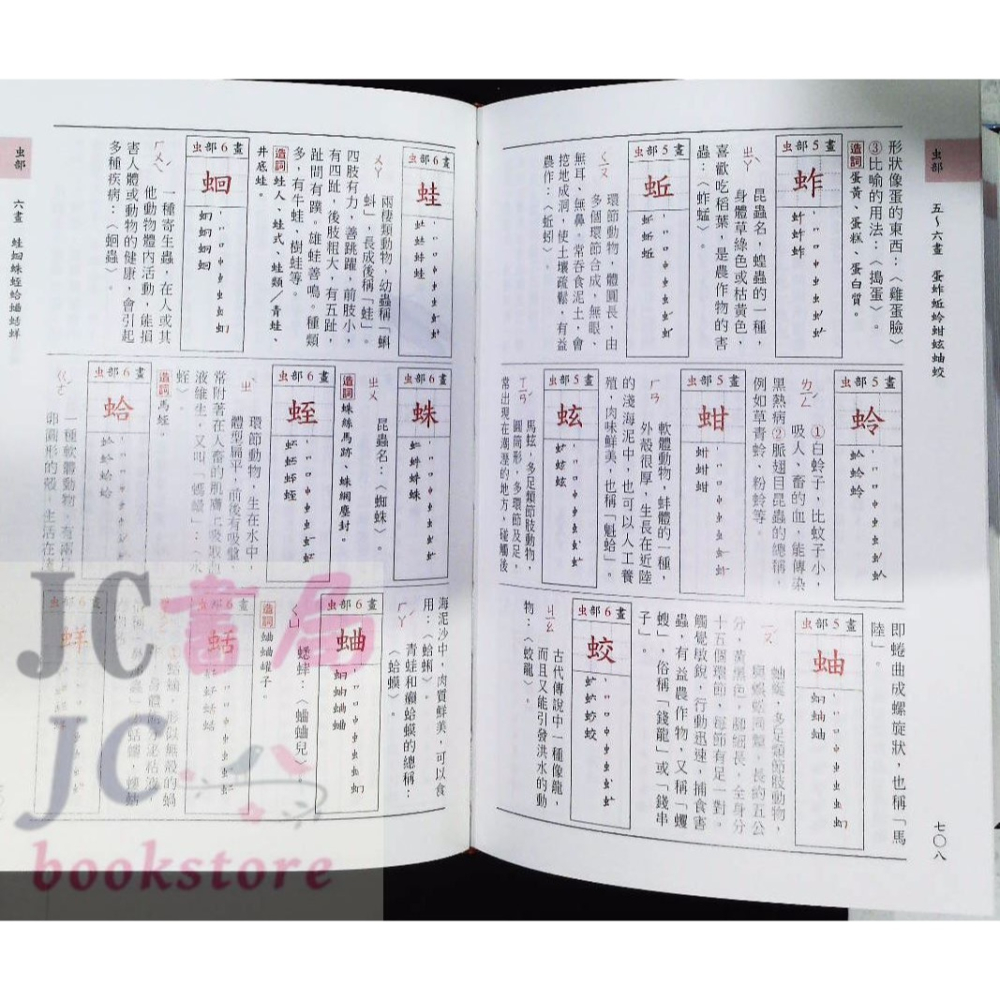 虫部
五～六畫 蛋蚱蚯蛉蚶蚿蚰蛟
七〇八
形狀像蛋的東西：〈雞蛋臉〉
③比喻的用法：〈搗蛋〉。
造詞 蛋黃、蛋糕、蛋白質。
虫部5畫
蚱
ㄓㄚˋ
昆蟲名，蝗蟲的一種，
身體草綠色或枯黃色，
喜歡吃稻葉，是農作物的害
蟲：〈蚱蜢〉。
虫部5畫
蚯
ㄑㄧㄡ
環節動物，體圓長，由
多個環節合成，無眼、
無耳、無鼻。常吞食泥土，會
挖地成洞，使土壤疏鬆，有益
農作：〈蚯蚓〉。
虫部5畫
蛉
ㄌㄧㄥˊ
①白蛉子，比蚊子小，
吸人、畜的血，能傳染
黑熱病②脈翅目昆蟲的總稱，
例如草青蛉、粉蛉等。
虫部5畫
蚶
ㄏㄢ
軟體動物，蚌體的一種，
外殼很厚，生長在近陸
的淺海泥中，也可以人工養
殖，肉味鮮美，也稱「魁蛤」。
虫部5畫
蚿
ㄒㄧㄢˊ
馬蚿，多足類節肢動物，
圓筒形，多環節及足，
常出現在潮溼的地方，碰觸後
即蜷曲成螺旋狀，也稱「馬
陸」。
虫部5畫
蚰
ㄧㄡˊ
蚰蜒，多足類節肢動物，
與蜈蚣同類，長約五公
分，黃黑色，體細長，全身分
十五個環節，每節有足一對。
觸覺敏銳，行動迅速，捕食害
蟲，有益農作物，又稱「蠼
螋」，俗稱「錢龍」或「錢串
子」。
虫部6畫
蛟
ㄐㄧㄠ
古代傳說中一種像龍，
而且又能引發洪水的動
物：〈蛟龍〉。
虫部
六畫 蛙蛔蛛蛭蛤蛐蛞蛘
虫部6畫
蛙
ㄨㄚ
兩棲類動物，幼蟲稱「蝌
蚪」，長成後稱「蛙」。
四肢有力，善跳躍，前肢小，
有四趾，後肢粗大，有五趾，
趾間有蹼。雄蛙善鳴。種類
多，有牛蛙，樹蛙等。
造詞 蛙人、蛙式、蛙類／青蛙、
井底蛙。
虫部6畫
蛔
ㄏㄨㄟˊ
一種寄生蟲，在人或其
他動物體內活動，能損
害人體或動物的健康，會引起
多種疾病：〈蛔蟲〉。
虫部6畫
蛛
ㄓㄨ
昆蟲名：〈蜘蛛〉。
造詞 蛛絲馬跡、蛛網塵封。
虫部6畫
蛭
ㄓˋ
環節動物，生在水中，
體型扁平，前後有吸盤，
常附著在人畜的肌膚上吸取血
液維生，又叫「螞蟥」：〈水
蛭〉。
造詞 馬蛭。
虫部6畫
蛤
ㄍㄜˊ
一種軟體動物，有兩片
卵圓形的殼，生活在淺
海泥沙中，肉質鮮美，可以食
用：〈蛤蜊〉。
ㄏㄚˊ
青蛙和癩蛤蟆的總稱：
〈蛤蟆〉。
虫部6畫
蛐
ㄑㄩ
蟋蟀：〈蛐蛐兒〉
造詞 蛐蛐罐子。
虫部6畫
蛞
虫部6畫
蛘
JC書局
JC
bookstore